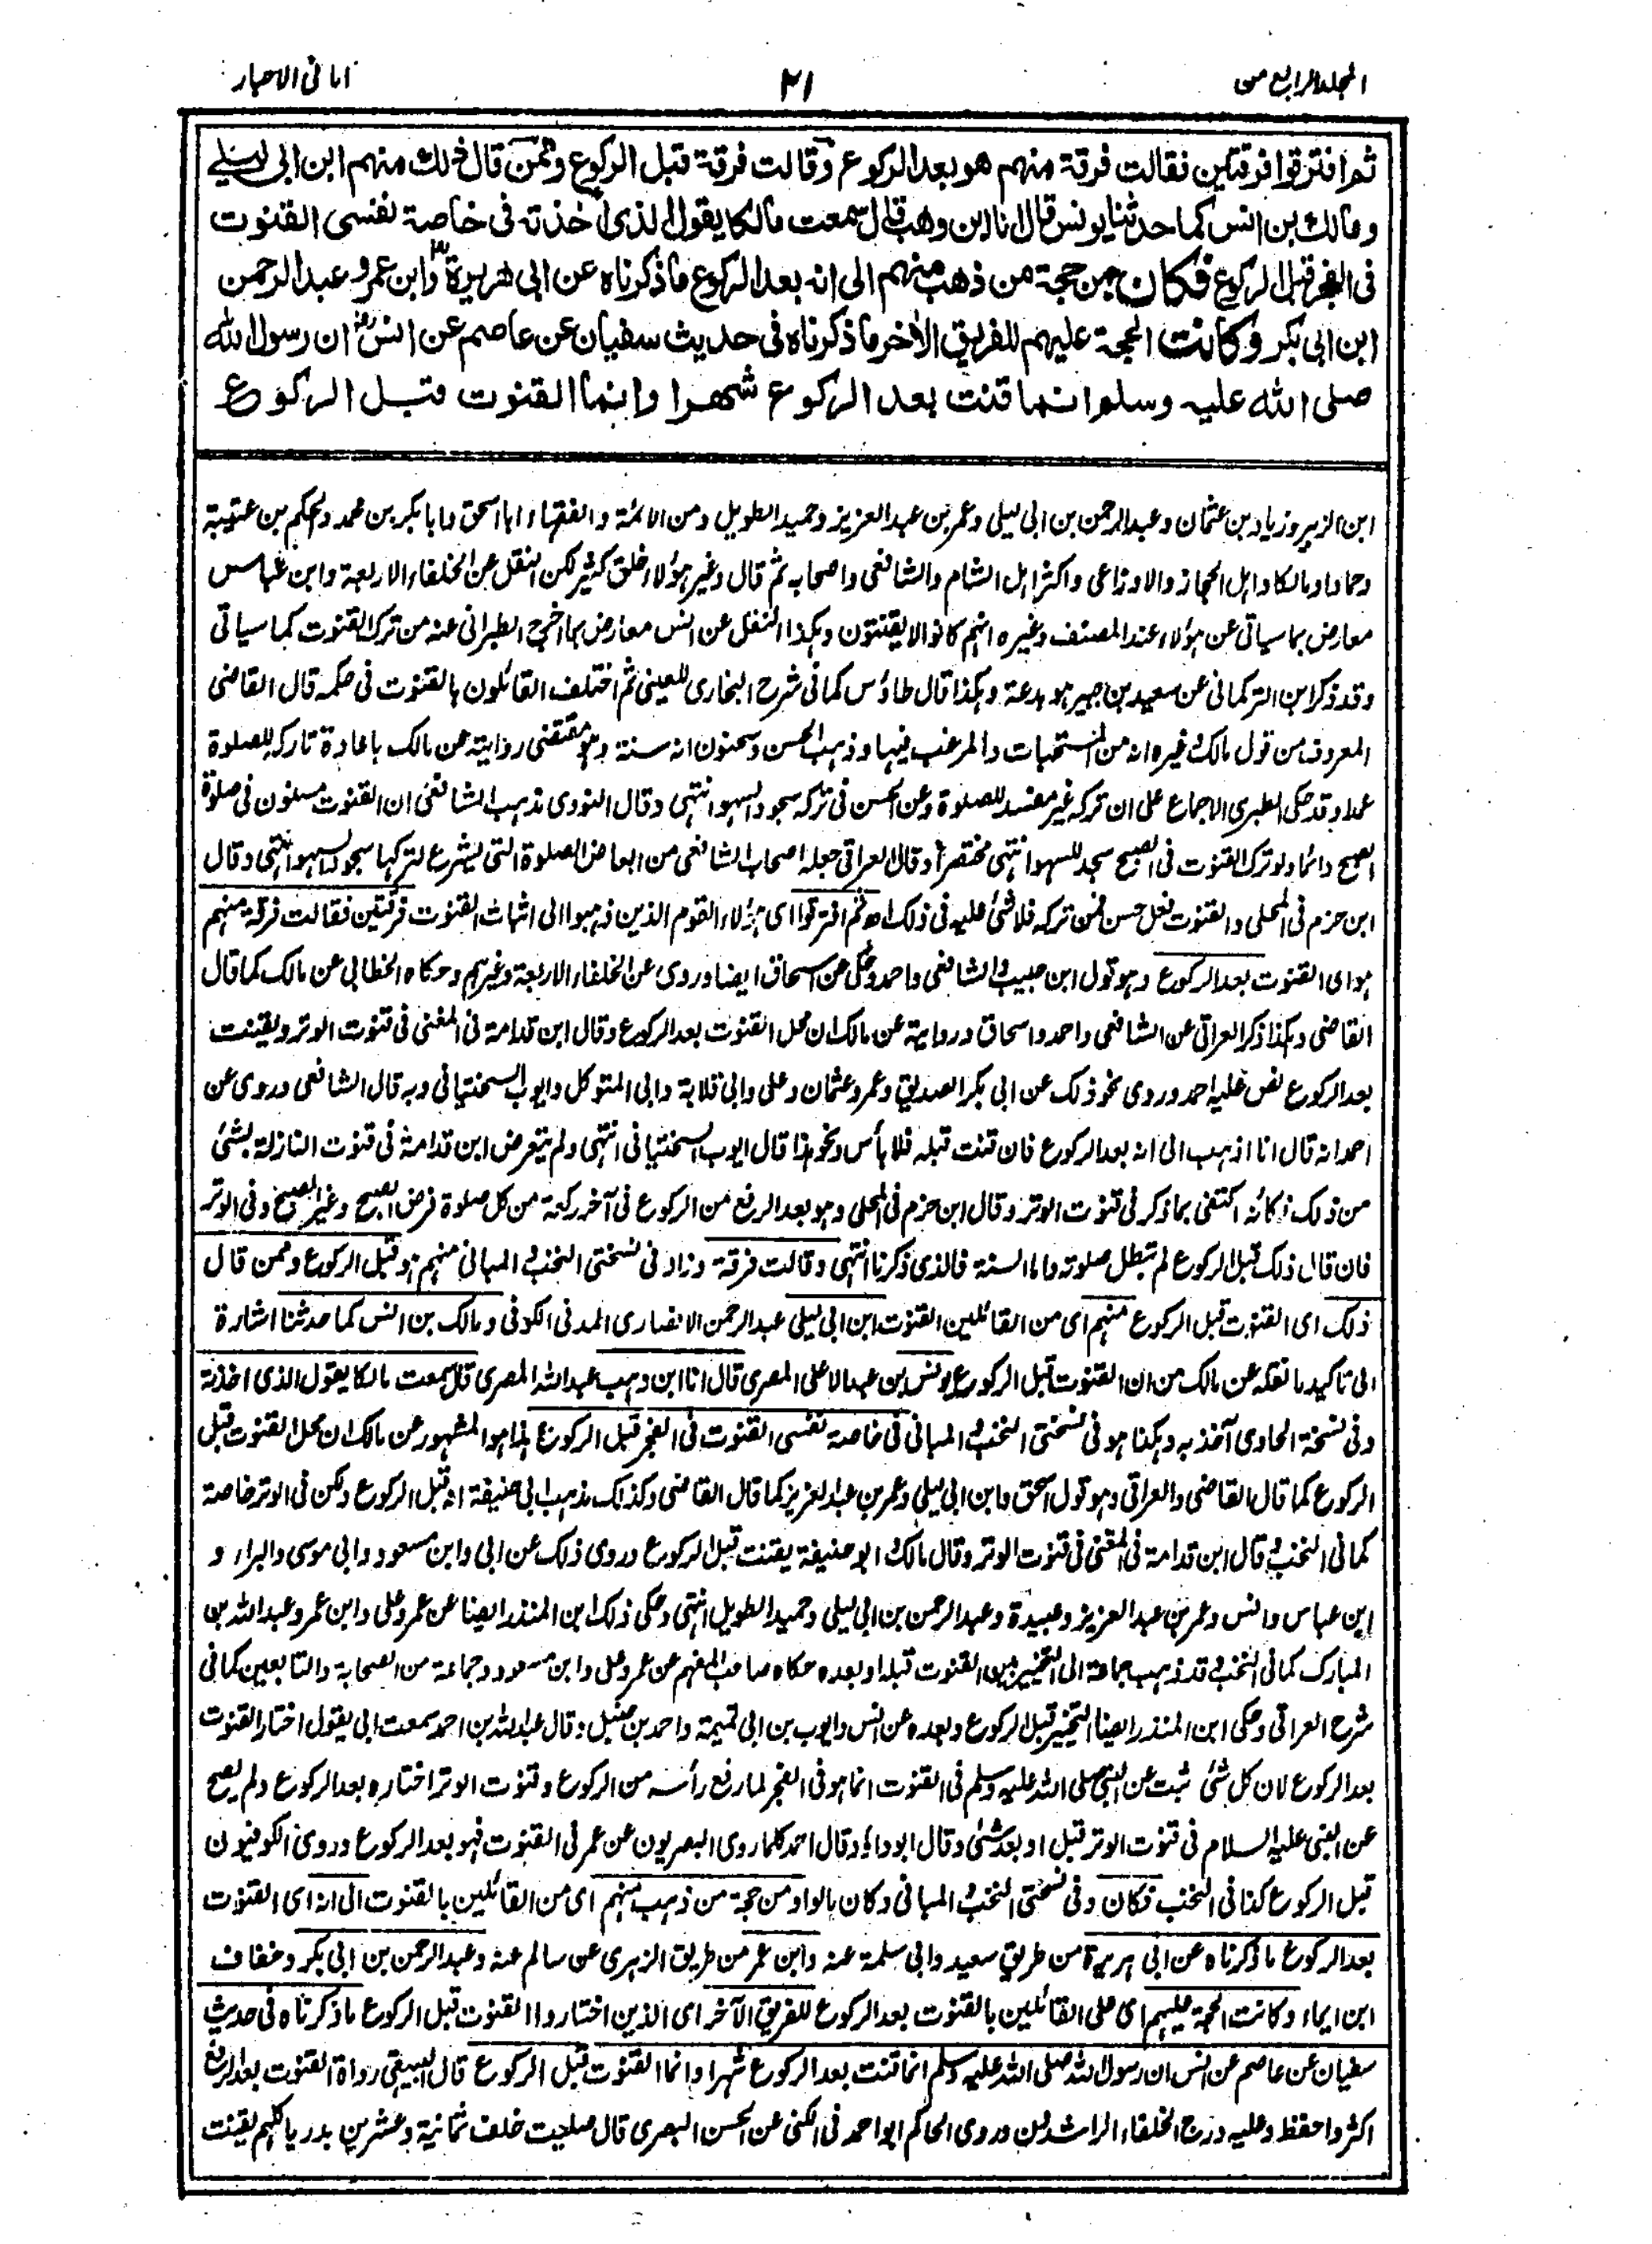 المجلد الرابع من
٢١
امانى الاحبار
ثم افترقوا فرقتين فقالت فرقة منهم هو بعد الركوع وقالت فرقة قبل الركوع وممن قال ذلك منهم ابن ابى ليلى
ومالك بن انس كما حدثنا يونس قال انا ابن وهب قال سمعت مالكا يقول الذى اخذته فى خاصة نفسى القنوت
فى الفجر قبل الركوع فكان من حجة من ذهب منهم الى انه بعد الركوع ما ذكرناه عن ابى هريرة وابن عمر وعبد الرحمن
ابن ابى بكر وكانت الحجة عليهم للفريق الآخر ما ذكرناه فى حديث سفيان عن عاصم عن انس ان رسول الله
صلى الله عليه وسلم انما قنت بعد الركوع شهرا وانما القنوت قبل الركوع
ابن الزبير وزياد بن عثمان وعبد الرحمن بن ابى ليلى وعمر بن عبد العزيز وحميد الطويل ومن الائمة والفقهاء ابا اسحق وابا بكر بن محمد والحكم بن عتيبة
وحمادا ومالكا واهل الحجاز والاوزاعى واكثر اهل الشام والشافعى واصحابه ثم قال وغير هؤلاء خلق كثير لكن النقل عن الخلفاء الاربعة وابن عباس
معارض بما سياتى عن هؤلاء عند المصنف وغيره انهم كانوا لا يقنتون وهكذا النقل عن انس معارض بما اخرج الطبرانى عنه من ترك القنوت كما سياتى
وقد ذكر ابن التركمانى عن سعيد بن جبير هو بدعة وهكذا قال طاؤس كما فى شرح البخارى للعينى ثم اختلف القائلون بالقنوت فى حكمه قال القاضى
المعروف من قول مالك وغيره انه من المستحبات والمرغب فيها وذهب الحسن وسحنون انه سنة وهو مقتضى روايته عن مالك باعادة تاركه للصلوة
عمدا وقد حكى الطبرى الاجماع على ان تركه غير مفسد للصلوة وعن الحسن فى تركه سجود السهو انتهى وقال النووى مذهب الشافعى ان القنوت مسنون فى صلوة
الصبح دائما ولو ترك القنوت فى الصبح سجد للسهو انتهى مختصرا وقال العراقى جعله اصحاب الشافعى من ابعاض الصلوة التى يشرع لتركها سجود السهو انتهى وقال
ابن حزم فى المحلى والقنوت فعل حسن فمن تركه فلا شئ عليه فى ذلك اھ ثم افترقوا اى هؤلاء القوم الذين ذهبوا الى اثبات القنوت فرقتين فقالت فرقة منهم
هو اى القنوت بعد الركوع وهو قول ابن حبيب والشافعى واحمد وحكى عن اسحاق ايضا وروى عن الخلفاء الاربعة وغيرهم وحكاه الخطابى عن مالك كما قال
القاضى وهكذا ذكر العراقى عن الشافعى واحمد واسحاق ورواية عن مالك ان محل القنوت بعد الركوع وقال ابن قدامة فى المغنى فى قنوت الوتر ويقنت
بعد الركوع نص عليه احمد وروى نحو ذلك عن ابى بكر الصديق وعمر وعثمان وعلى وابى قلابة وابى المتوكل وايوب السختيانى وبه قال الشافعى وروى عن
احمد انه قال انا اذهب الى انه بعد الركوع فان قنت قبله فلا بأس ونحو هذا قال ايوب السختيانى انتهى ولم يتعرض ابن قدامة فى قنوت النازلة بشئ
من ذلك فكأنه اكتفى بما ذكر فى قنوت الوتر وقال ابن حزم فى المحلى وهو بعد الرفع من الركوع فى آخر ركعة من كل صلوة فرض الصبح وغير الصبح وفى الوتر
فان قال ذلك قبل الركوع لم تبطل صلوته واما السنة فالذى ذكرنا انتهى وقالت فرقة وزاد فى نسختى النخب والمبانى منهم هو قبل الركوع وممن قال
ذلك اى القنوت قبل الركوع منهم اى من القائلين القنوت ابن ابى ليلى عبد الرحمن الانصارى المدنى الكوفى ومالك بن انس كما حدثنا اشارة
الى تاكيد ما نقله عن مالك من ان القنوت قبل الركوع يونس بن عبد الاعلى المصرى قال انا ابن وهب عبد الله المصرى قال سمعت مالكا يقول الذى اخذته
وفى نسخة الحاوى آخذ به وهكذا هو فى نسختى النخب والمبانى فى خاصة نفسى القنوت فى الفجر قبل الركوع هذا هو المشهور عن مالك ان محل القنوت قبل
الركوع كما قال القاضى والعراقى وهو قول اسحق وابن ابى ليلى وعمر بن عبد العزيز كما قال القاضى وكذلك مذهب ابى حنيفة انه قبل الركوع ولكن فى الوتر خاصة
كما فى النخب وقال ابن قدامة فى المغنى فى قنوت الوتر وقال مالك وابو حنيفة يقنت قبل الركوع وروى ذلك عن ابى وابن مسعود وابى موسى والبراء و
ابن عباس وانس وعمر بن عبد العزيز وعبيدة وعبد الرحمن بن ابى ليلى وحميد الطويل انتهى وحكى ذلك ابن المنذر ايضا عن عمر وعلى وابن عمر وعبد الله بن
المبارك كما فى النخب وقد ذهب جماعة الى التخيير بين القنوت قبله او بعده حكاه صاحب المفهم عن عمر وعلى وابن مسعود وجماعة من الصحابة والتابعين كما فى
شرح العراقى وحكى ابن المنذر ايضا التخيير قبل الركوع وبعده عن انس وايوب بن ابى تميمة واحمد بن حنبل وقال عبد الله بن احمد سمعت ابى يقول اختار القنوت
بعد الركوع لان كل شئ ثبت عن النبى صلى الله عليه وسلم فى القنوت انما هو فى الفجر لما رفع رأسه من الركوع وقنوت الوتر اختاره بعد الركوع ولم يصح
عن النبى عليه السلام فى قنوت الوتر قبل او بعد شئ وقال ابو داؤد وقال احمد كلما روى البصريون عن عمر فى القنوت فهو بعد الركوع وروى الكوفيون
قبل الركوع كذا فى النخب فكان وفى نسختى النخب والمبانى وكان بالواو من حجة من ذهب منهم اى من القائلين بالقنوت الى انه اى القنوت
بعد الركوع ما ذكرناه عن ابى هريرة من طريق سعيد وابى سلمة عنه وابن عمر من طريق الزهرى عن سالم عنه وعبد الرحمن بن ابى بكر وخفاف
ابن ايماء وكانت الحجة عليهم اى على القائلين بالقنوت بعد الركوع للفريق الآخر اى الذين اختاروا القنوت قبل الركوع ما ذكرناه فى حديث
سفيان عن عاصم عن انس ان رسول الله صلى الله عليه وسلم انما قنت بعد الركوع شهرا وانما القنوت قبل الركوع قال البيهقى رواة القنوت بعد الرفع
اكثر واحفظ وعليه درج الخلفاء الراشدين وروى الحاكم ابو احمد فى الكنى عن الحسن البصرى قال صليت خلف ثمانية وعشرين بدريا كلهم يقنت